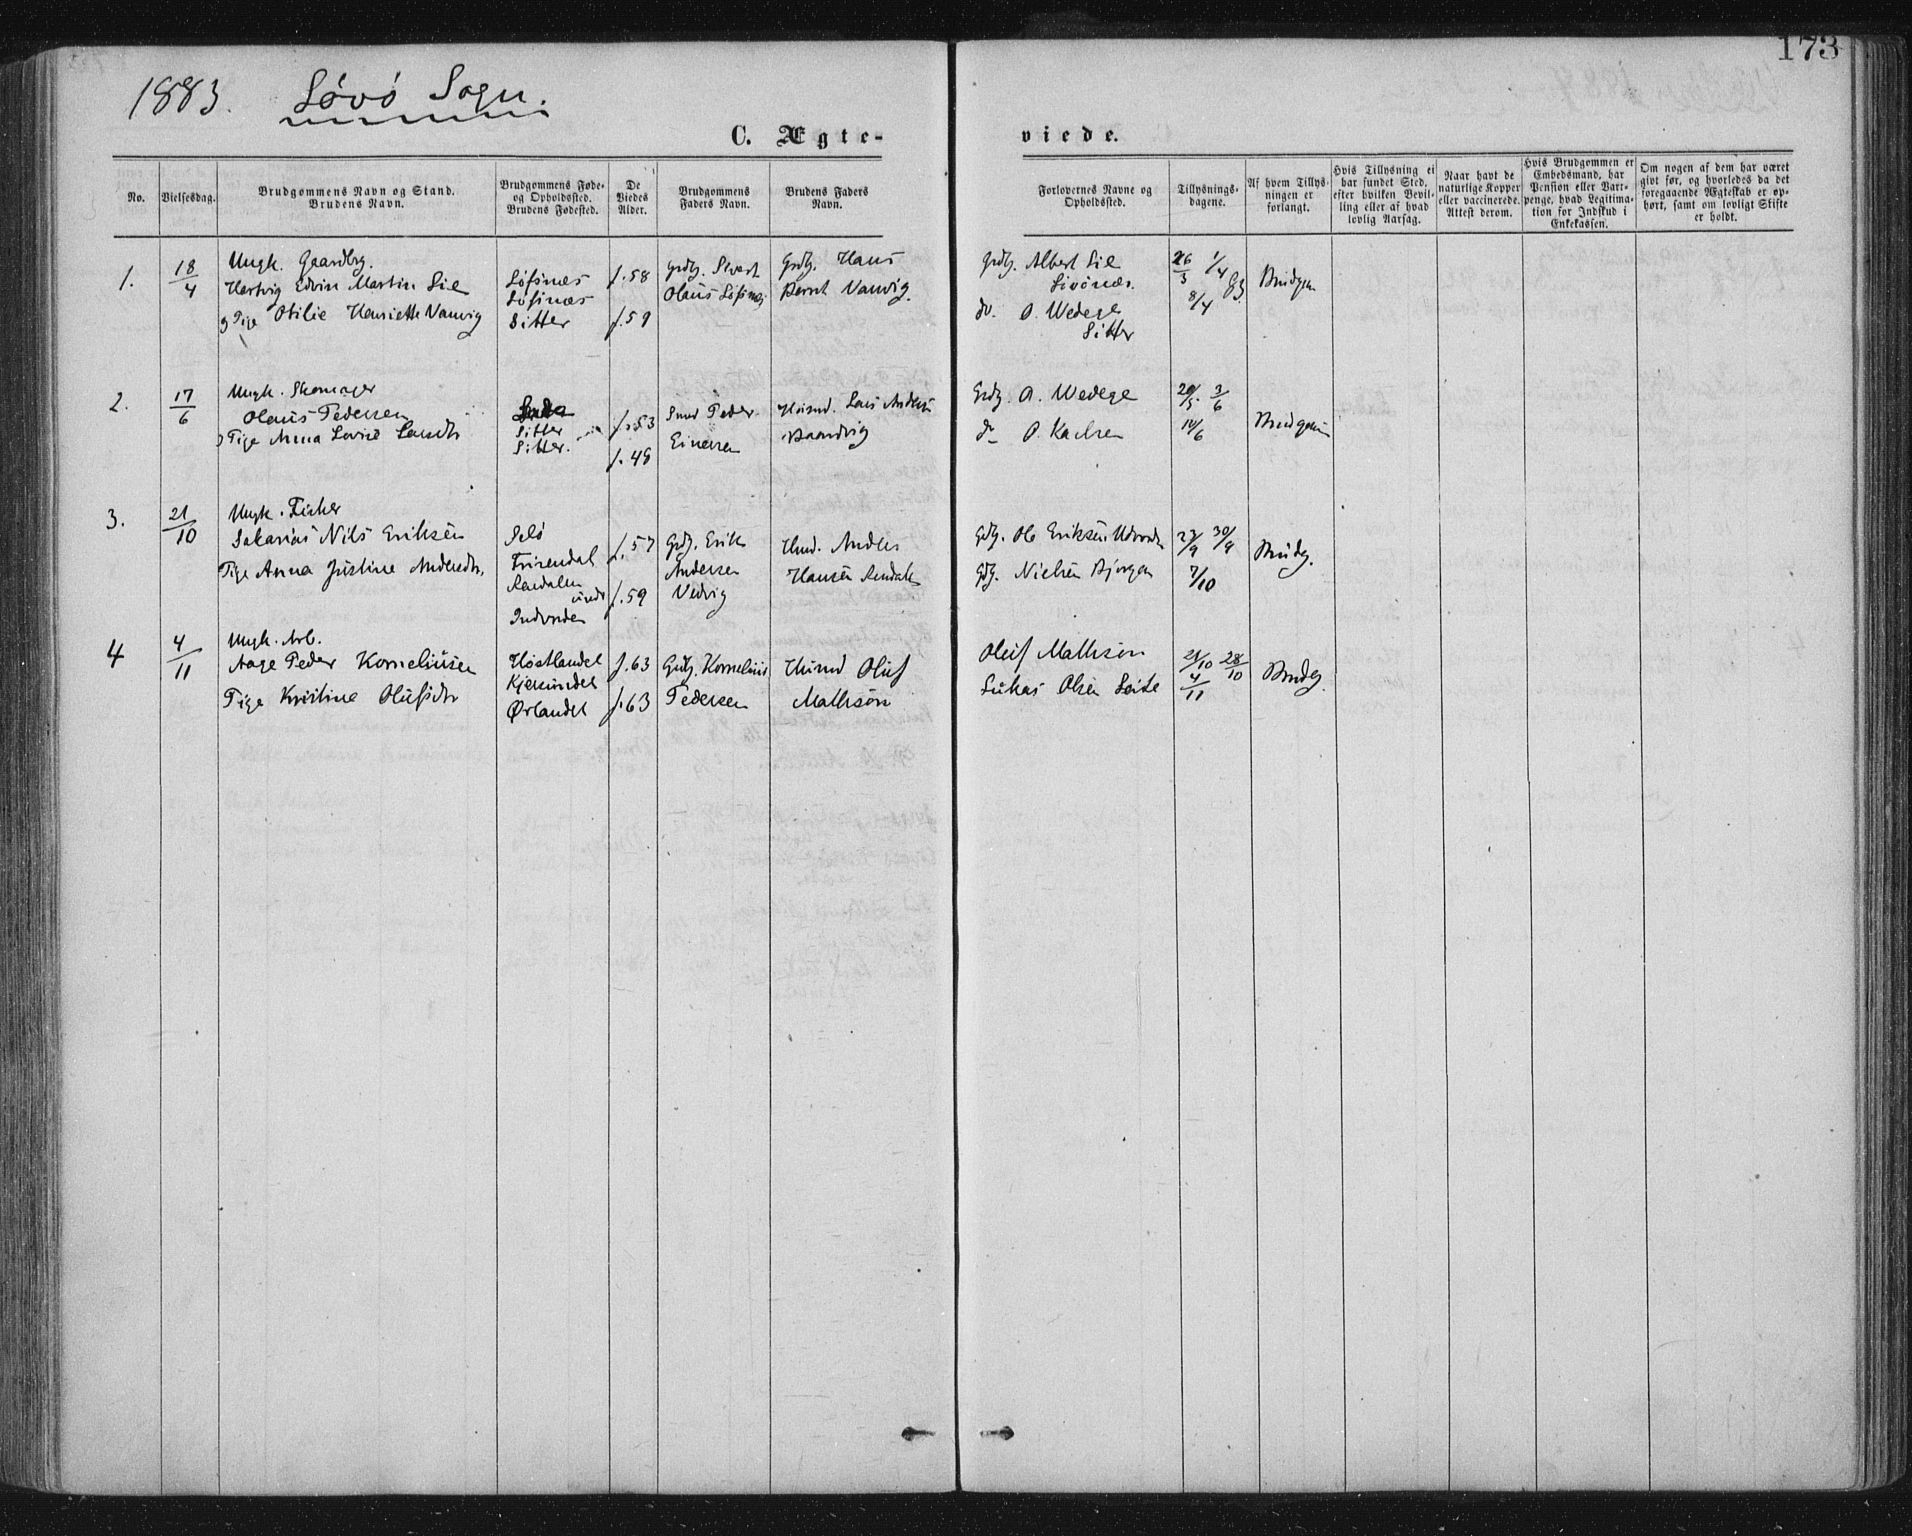 173
1883. Løvø Sogn.
C. Ægte-
viede.
No.
Vielsesdag.
Brudgommens Navn og Stand.
Brudens Navn.
Brudgommens Føde-
og Opholdssted.
Brudens Fødested.
De
Viedes
Alder.
Brudgommens
Faders Navn.
Brudens Faders
Navn.
Forlovernes Navne og
Opholdssted.
Tillysnings-
dagene.
Af hvem Tillys-
ningen er
forlangt.
Hvis Tillysning ei
har fundet Sted,
efter hvilken Bevil-
ling eller af hvad
lovlig Aarsag.
Naar havt de
naturlige Kopper
eller vaccinerede.
Attest derom.
Hvis Brudgommen er
Embedsmand, har
Pension eller Vart-
penge, hvad Legitima-
tion for Indskud i
Enkekassen.
Om nogen af dem har været
givt før, og hvorledes da det
foregaaende Ægteskab er op-
hørt, samt om lovligt Skifte
er holdt.
1.
18/4
Ungk. Gaardbrg.
Hartvig Edvin Martin Lie
Pige Otilie Henriette Vanvig
Løfsnæs
Løfsnæs
Sitter
f. 58
f. 59
Grdbg. Sivert
Olaus Løfsnæs
Grdbg. Hans
Bernt Vanvig.
Grdbg. Albert Lie
do. O. Wedege
Sitter
26/3 1/4
8/4
Brudgom
2.
17/6
Ungk. Skomager
Olaus Pedersen
Pige Anna Lovise Larsdtr
Sitter
Sitter.
f. 53
f. 49
Peder
Einersen
Husmd. Lars Anders
Grdbg. O. Wedege
do O. Karlsen
20/5. 3/6
10/6
Brudgom
3.
21/10
Ungk. Fisker
Sakarias Nils Eriksen
Pige Anna Justine Andersdtr.
Selø
Aendalen
under
Indvorden
f. 57
f. 59
Grdbg. Erik
Andersen
Vedvig
Husmd. Anders
Hansen Aendalen
Grdbg. Ole Eriksen Udvorda
Gdbg. Nielsen Bjørgan
23/9 30/9
7/10
Brudg.
4
4/11
Ungk. Arb.
Aage Peder Korneliusen
Pige Kristine Olufsdtr
Høstlandet
Kjelsundet
Ørlandet
f. 63
f. 63
Grdbg. Kornelius
Pedersen
Husmd Oluf
Mathisøn
Oluf Mathisøn
Lukas Olsen Leite
21/10 28/10
4/11
Brudg.